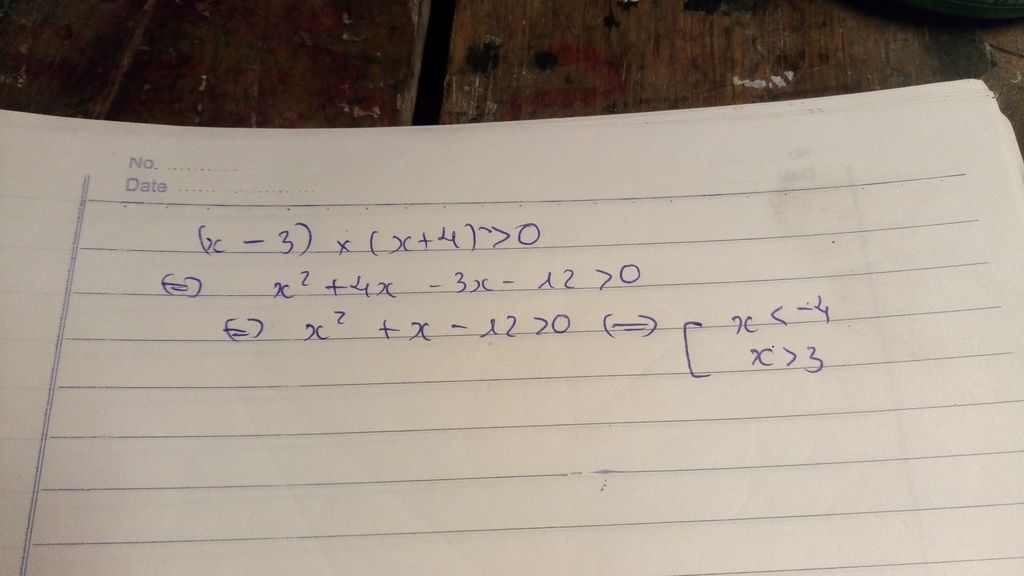 No. ............
Date ........................
(x - 3) × (x+4) > 0
⇔ x² + 4x - 3x - 12 > 0
⇔ x² + x - 12 > 0 ⇔ [ x < -4
x > 3